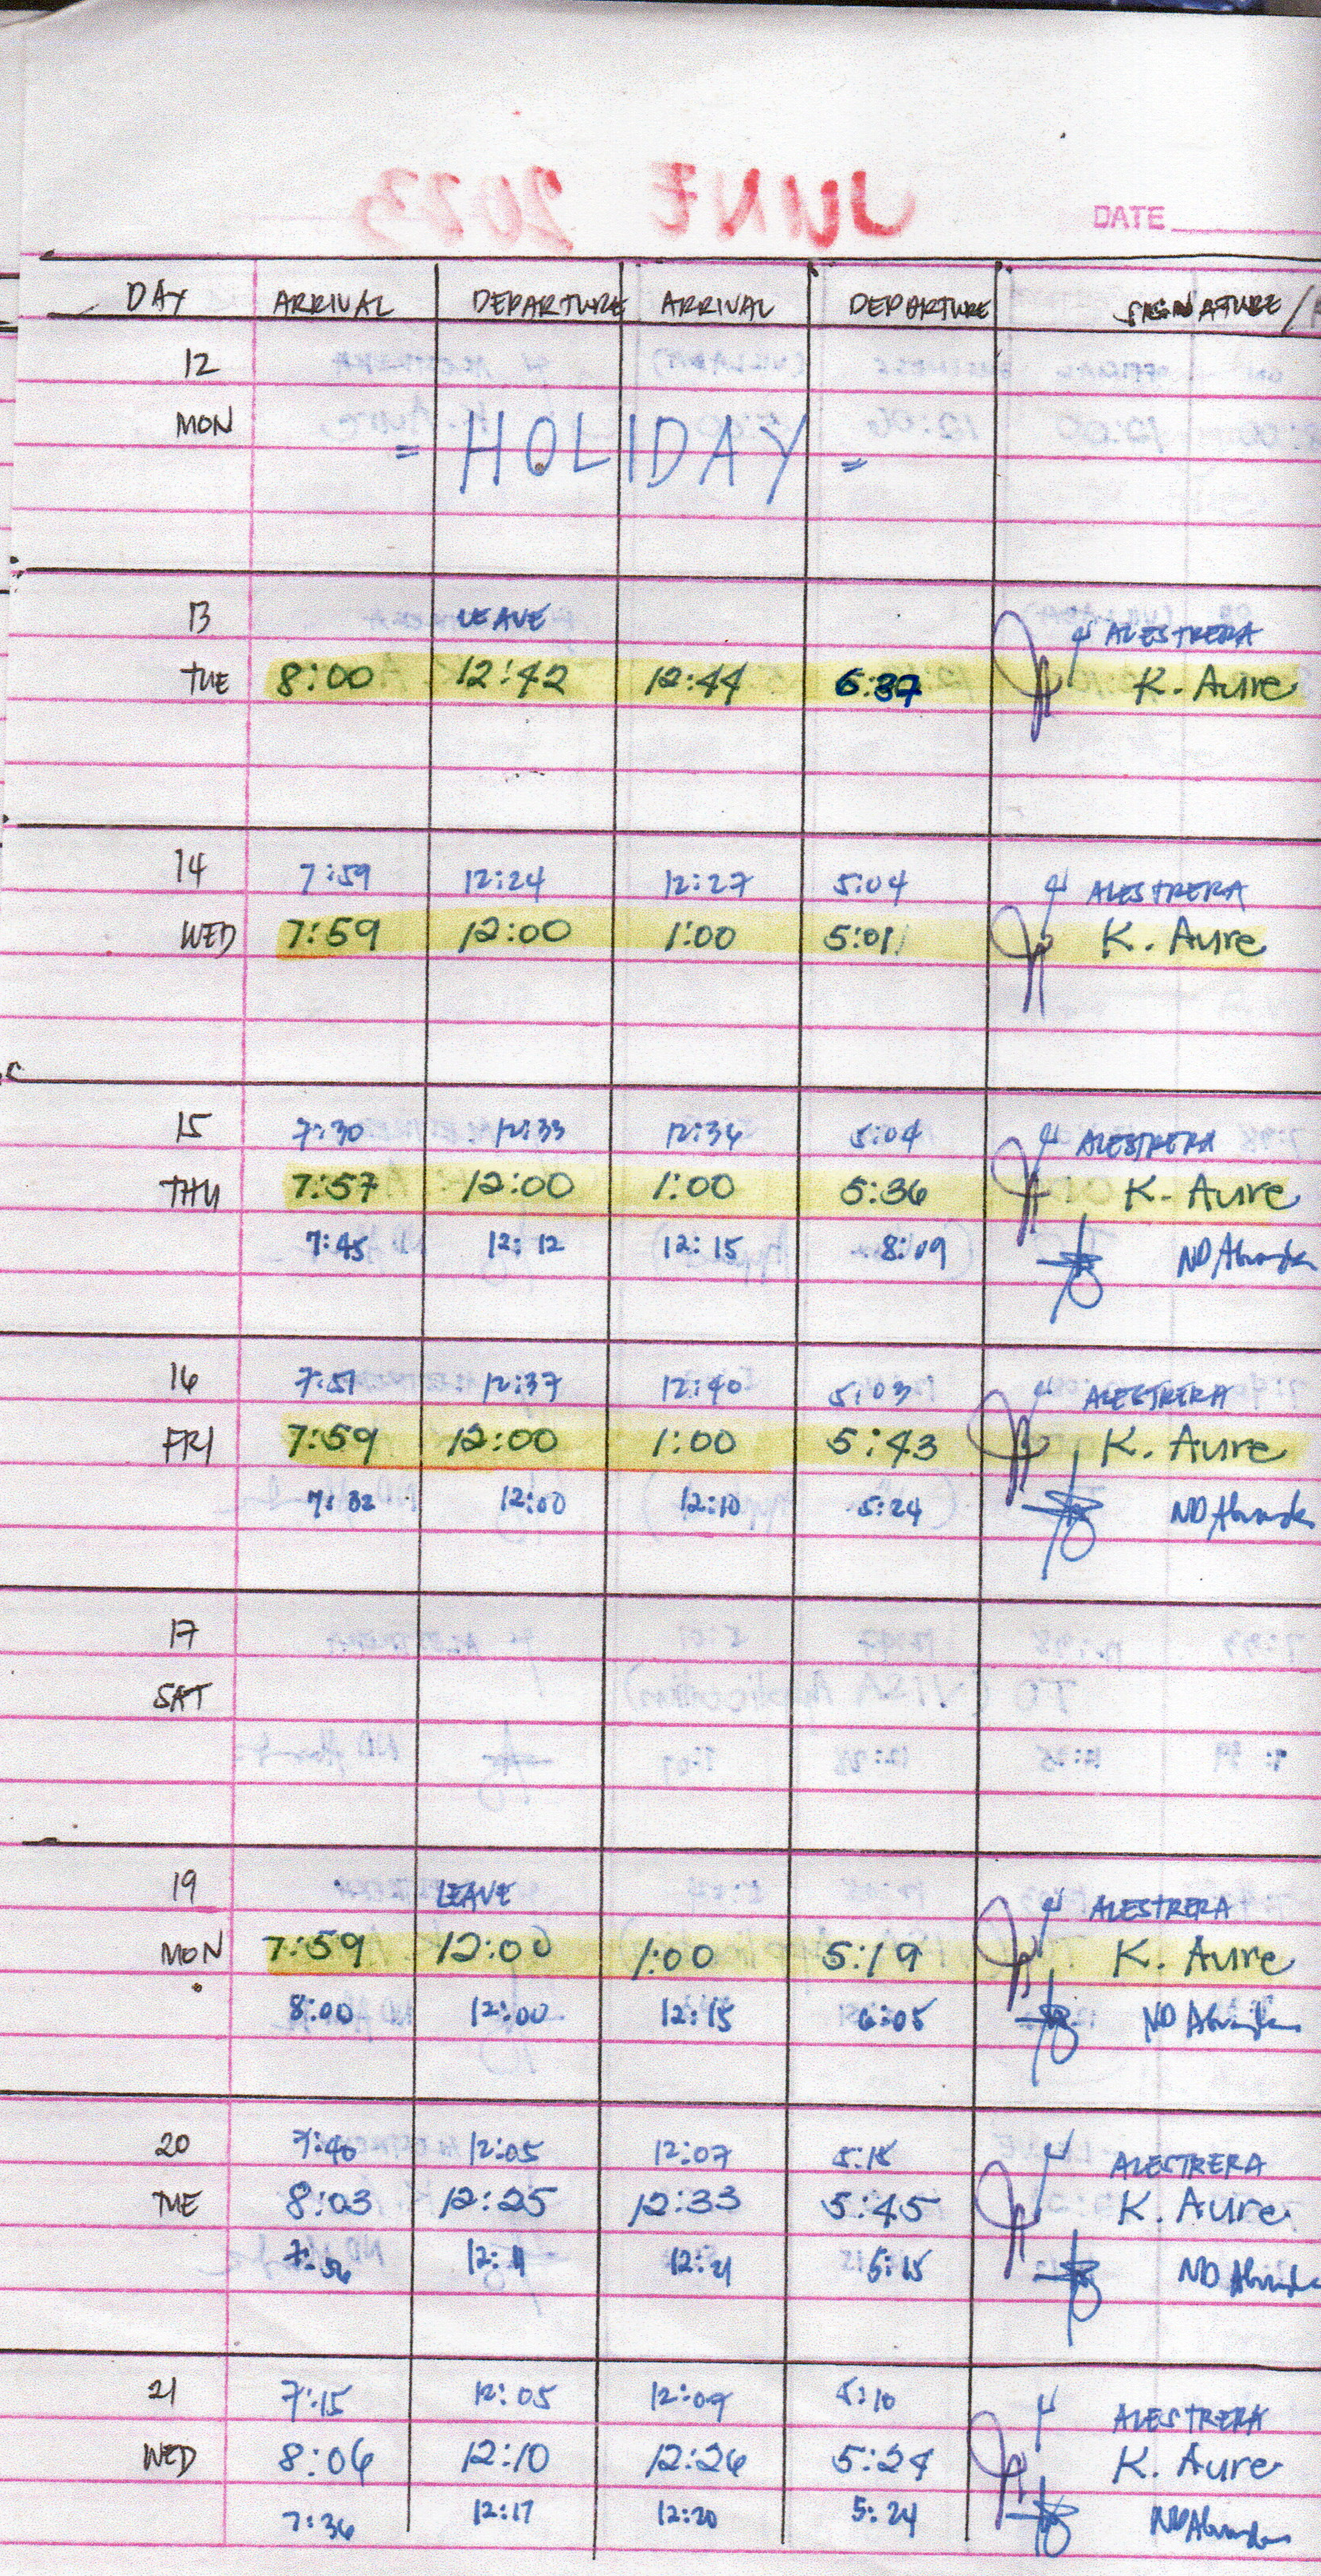 JUNE 2023
DATE
DAY ARRIVAL DEPARTURE ARRIVAL DEPARTURE SIGNATURE /
12
MON
= HOLIDAY =
13 LEAVE ALESTRERA
TUE 8:00 12:42 12:44 6:37 K. Aure
14 7:59 12:24 12:27 5:04 ALESTRERA
WED 7:59 12:00 1:00 5:01 K. Aure
15 7:30 12:33 12:36 5:04 ALESTRERA
THU 7:57 12:00 1:00 5:36 K. Aure
7:45 12:12 12:15 8:09 ND
16 7:51 12:37 12:40 5:03 ALESTRERA
FRI 7:59 12:00 1:00 5:43 K. Aure
7:32 12:00 12:10 5:24 ND
17
SAT
19 LEAVE ALESTRERA
MON 7:59 12:00 1:00 5:19 K. Aure
8:00 12:00 12:15 6:05 ND
20 7:40 12:05 12:07 5:15 ALESTRERA
TUE 8:03 12:25 12:33 5:45 K. Aure
7:56 12:11 12:21 5:15 ND
21 7:15 12:05 12:09 5:10 ALESTRERA
WED 8:06 12:10 12:26 5:24 K. Aure
7:36 12:17 12:20 5:24 ND